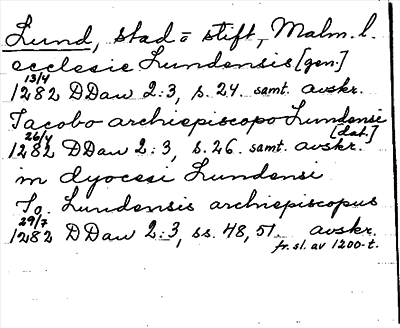 Lund, stad o stift, Malm. l.
ecclesie Lundensis [gen.]
13/4
1282 DDan 2:3, s. 24. samt. avskr.
Jacobo archiepiscopo Lundensi
[dat.]
26/4
1282 DDan 2:3, s. 26. samt. avskr.
in dyocesi Lundensi
Jo. Lundensis archiepiscopus
29/7
1282 DDan 2:3, ss. 48, 51. avskr.
fr. sl. av 1200-t.